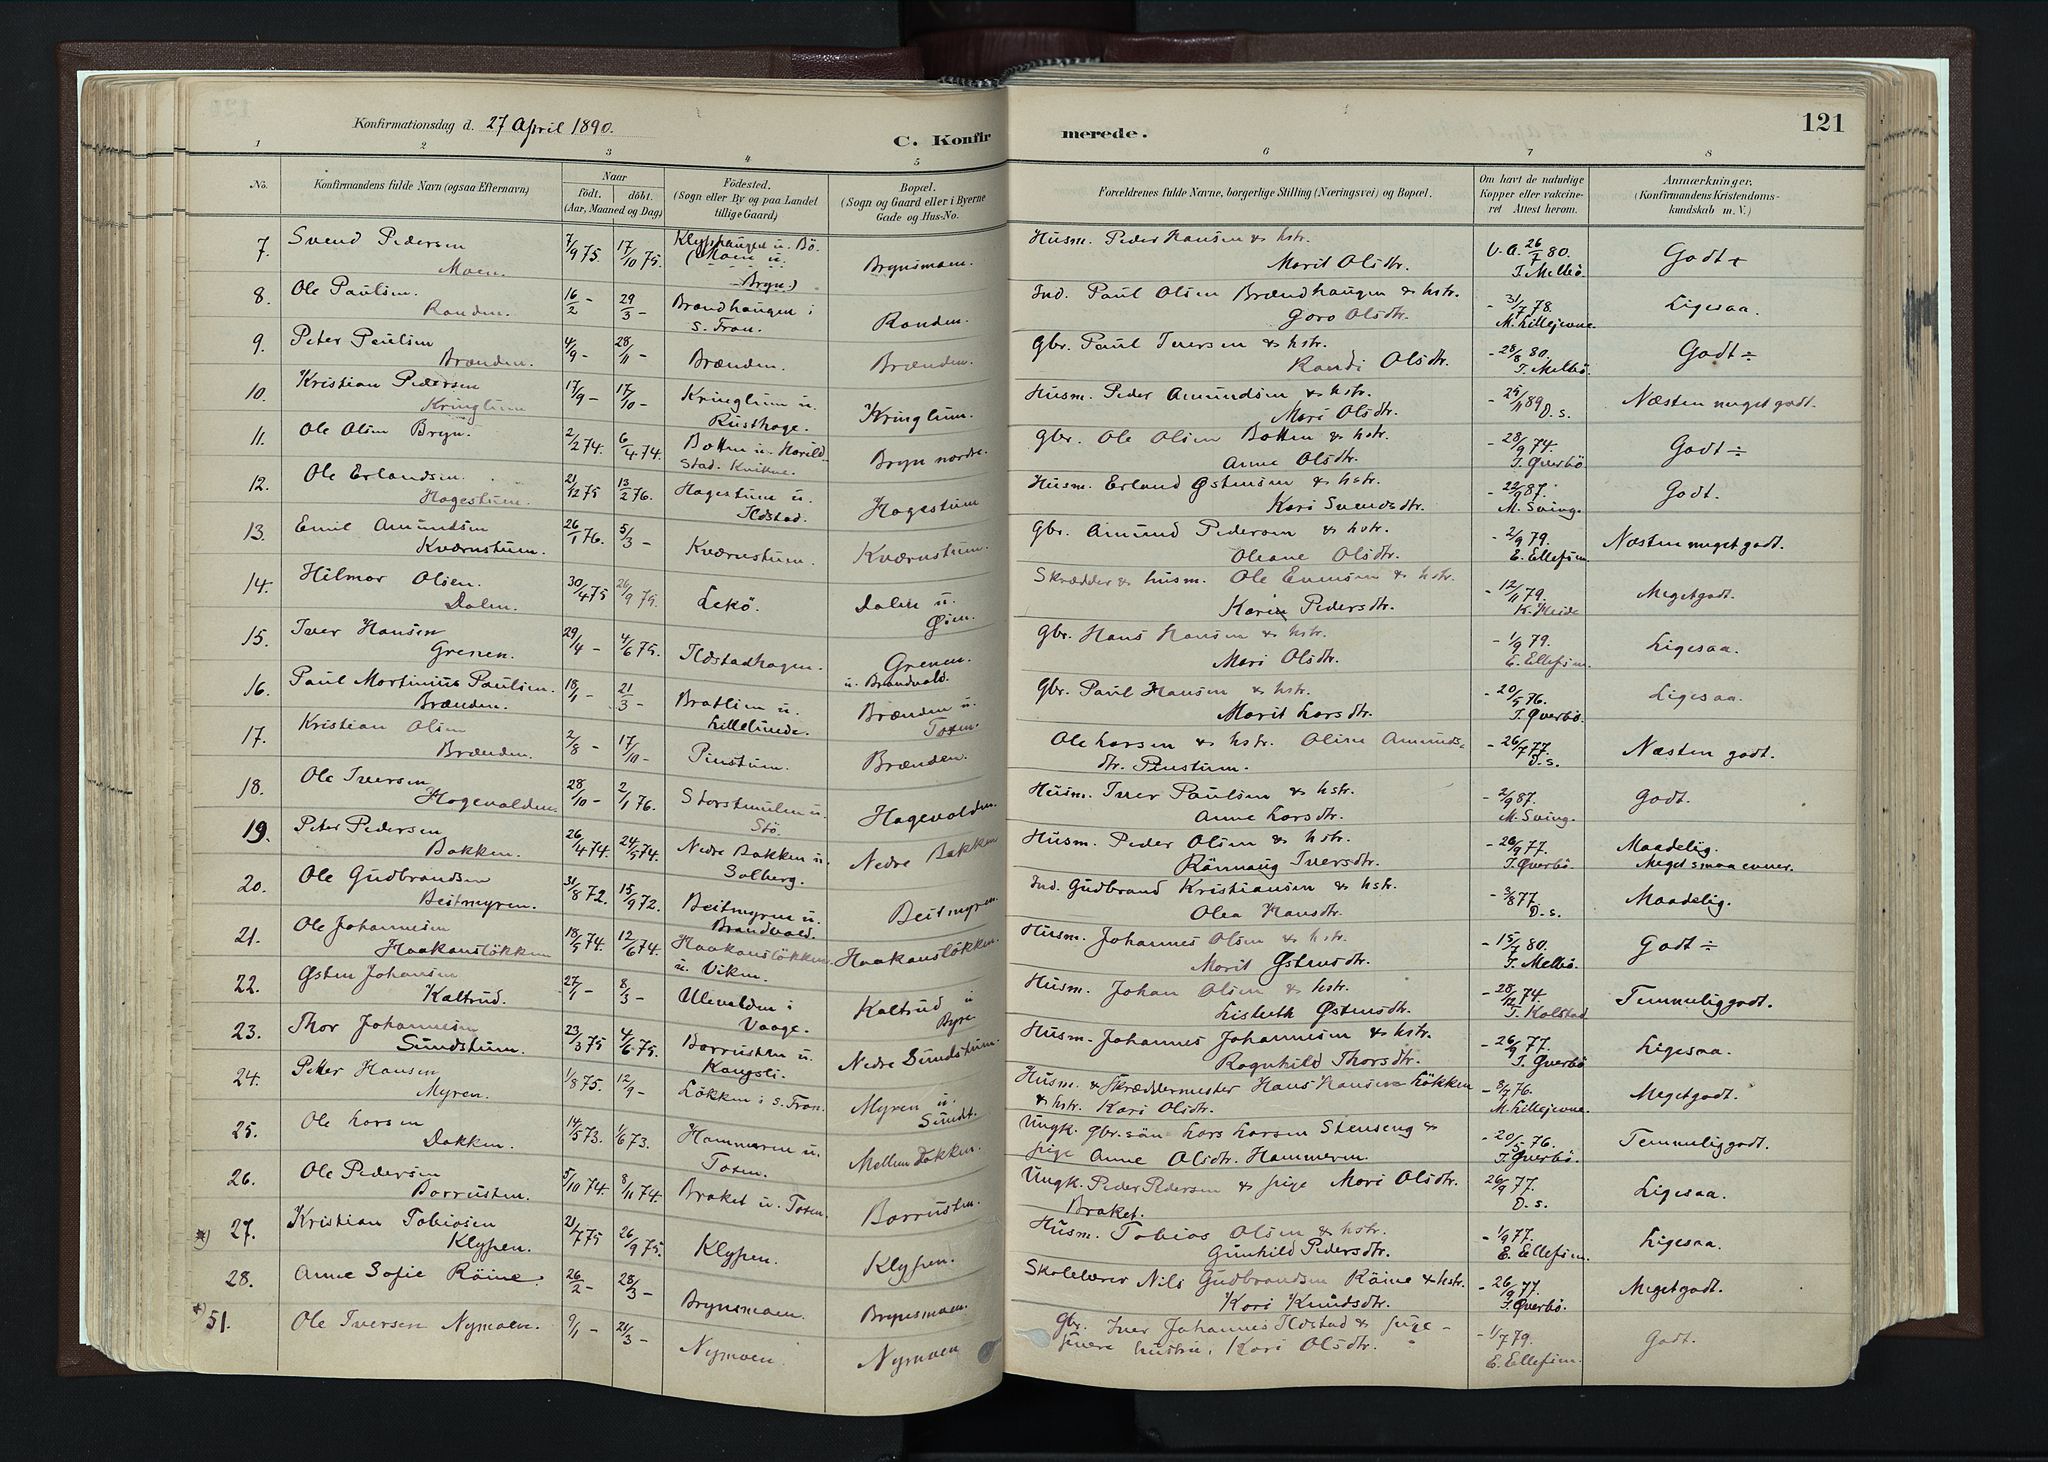 Konfirmationsdag d. 27 April 1890.
C. Konfirmerede.
121
1 2 3 4 5 6 7 8
No. Konfirmandens fulde Navn (ogsaa Efternavn) Naar født, døbt. (Aar, Maaned og Dag) Fødested. (Sogn eller By og paa Landet tillige Gaard) Bopæl. (Sogn og Gaard eller i Byerne Gade og Hus-No. Forældrenes fulde Navne, borgerlige Stilling (Næringsvei) og Bopæl. Om havt de naturlige Kopper eller vakcineret Attest herom. Anmærkninger. (Konfirmandens Kristendomskundskab m. V.)
7. Svend Pedersen Moen. 7/9 75. 17/10 75. Klyphaugen u. Bö. (Moen u. Bryn.) Brynsmoen. Husm. Peder Hansen & hstr. Marit Olsdtr. V. A. 26/7 80. T. Melbö. Godt +
8. Ole Paulsen. Randen. 16/2 - 29/3 - Brændhaugen i S. Fron. Randen. Ind. Paul Olsen Brændhaugen & hstr. Goro Olsdtr. - 31/7 78. M. Lillejevne. Ligesaa.
9. Peter Paulsen Brænden. 4/9 - 28/11 - Brænden. Brænden. Gbr. Paul Iversen & hstr. Randi Olsdtr. - 28/8 80. T. Melbö. Godt ÷
10. Kristian Pedersen Kringlum 17/9 - 17/10 - Kringlum u. Rusthage. Kringlum. Husm. Peder Amundsen & hstr. Mari Olsdtr. - 25/11 89 D. s. Næsten meget godt.
11. Ole Olsen Bryn. 2/2 74. 6/4 74. Botten u. Harildstad. Kvikne. Bryn nordre. Gbr. Ole Olsen Botten & hstr. Anne Olsdtr. - 28/9 74. T. Øverbö. Godt ÷
12. Ole Erlandsen. Hagestuen. 21/12 75 13/2 76. Hagestuen u. Ildstad. Hagestuen Husm. Erland Østensen & hstr. Kari Svendsdtr. - 22/9 87. M. Sving. Godt.
13. Emil Amundsen Kværnstuen. 26/1 76. 5/3 - Kværnstuen. Kværnstuen. Gbr. Amund Pedersen & hstr. Oleane Olsdtr. - 2/9 79. E. Ellefsen Næsten meget godt.
14. Hilmar Olsen. Dalen. 30/4 75 26/9 75. Lekö. Dalen u. Øien. Skrædder & husm. Ole Evensen & hstr. Karin Pedersdtr. - 12/11 79. Meget godt.
15. Iver Hansen Grenen. 29/4 - 4/6 75. Ildstadhagen. Grenen. u. Brandvold. Gbr. Hans Hansen & hstr. Mari Olsdtr. - 1/9 79. E. Ellefsen. Ligesaa.
16. Paul Martinius Paulsen. Brænden. 18/1 - 21/3 - Bratlien u. Lillelunde. Brænden u. Toxen. Gbr. Paul Hansen & hstr. Marit Larsdtr. - 20/5 76. T. Øverbö. Ligesaa.
17. Kristian Olsen Brænden. 2/8 - 17/10 - Pinstuen. Brænden. Ole Larsen & hstr. Oline Amundsdtr. Pinstuen. - 26/7 77. D. s. Næsten godt.
18. Ole Iversen Hagevolden. 28/10 - 2/1 76. Storstenslien u. Stö. Hagevolden. Husm. Iver Paulsen & hstr. Anne Larsdtr. - 2/9 87. M. Sving. Godt.
19. Peter Pedersen Bakken. 26/4 74. 24/5 74. Nedre Bakken u. Solberg. Nedre Bakken Husm. Peder Olsen & hstr. Rönnaug Iversdtr. - 26/9 77. T. Øverbö. Maadelig. Meget smaa evner.
20. Ole Gudbrandsen Beitmyren. 31/8 72. 15/9 72. Beitmyren u. Brandvold. Beitmyren. Ind. Gudbrand Kristiansen & hstr. Olea Hansdtr. - 3/8 77. D. s. Maadelig.
21. Ole Johannesen Haakansløkken 18/5 74. 12/6 74. Haakansløkken. u. Viken. Haakansløkken. Husm. Johannes Olsen & hstr. Marit Østensdtr. - 15/7 80. T. Melbö. Godt ÷
22. Østen Johansen Kaltrud. 27/1 - 8/3 - Ulevolden i Vaage. Kaltrud u Byre Husm. Johan Olsen & hstr. Lisbeth Østensdtr. - 28/12 74. T. Kolstad Temmelig godt.
23. Thor Johannesen Sundstuen. 23/3 75 4/6 75. Borrusten u. Kongsli. Nedre Sundstuen. Husm. Johannes Johannesen & hstr. Ragnhild Thorsdtr. - 26/9 77. T. Øverbö Ligesaa.
24. Peter Hansen Myren. 1/8 75. 12/9 - Løkken i S. Fron. Myren u. Sundt. Husm. & Skræddermester Hans Hansen Løkken & hstr. Kari Olsdtr. - 8/7 76. M. Lillejevne. Meget godt.
25. Ole Larsen Dakken. 14/5 73. 1/6 73. Hammeren u. Toxen. Mellem Dakken. Ungk. gbr.sön Lars Larsen Stenseng & pige Anne Olsdtr. Hammeren. - 20/5 76. T. Øverbö. Temmelig godt.
26. Ole Pedersen Borrusten. 5/10 74. 8/11 74. Braket u. Toxen. Borrusten. Ungk. Peder Pedersen & pige Mari Olsdtr. Braket. 26/9 77. D. s. Ligesaa.
*) 27. Kristian Tobiasen Klypen. 21/7 75 26/9 75. Klypen. Klypen. Husm. Tobias Olsen & hstr. Gunhild Pedersdtr. - 1/9 77. E. Ellefsen. Ligesaa.
28. Anne Sofie Räine. 26/2 - 28/3 - Brynsmoen. Brynsmoen. Skolelærer Nils Gudbrandsen Räine & hstr. Kari Knudsdtr. - 26/9 77. T. Øverbö. Meget godt.
+) 51. Ole Iversen Nymoen. 9/1 - 21/3 - Nymoen. Nymoen Gbr. Iver Johannes Ildstad & pige - hustru. Kari Olsdtr. - 1/7 79. E. Ellefsen. Godt.